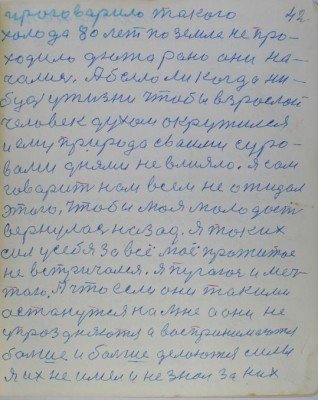 42
проговарило такого
холода 80 лет по земле не про-
ходило дюжа рано они на-
чались. А было ли когда ни-
будь у жизни чтобы взрослой
человек духом окружился
и ему природа своими суро-
вами днями не влияло. Я сам
говарит нам всем не ожидал
этого, чтобы моя молодость
вернулась назад. Я таких
сил у себя за всё моё прожитое
не встричался. Я пугаюс и меч-
таю, А что если они такими
останутся на мне а они не
упраздняются а воспринимаются
больше и больше делаются силы
я их не имел и не знал за них